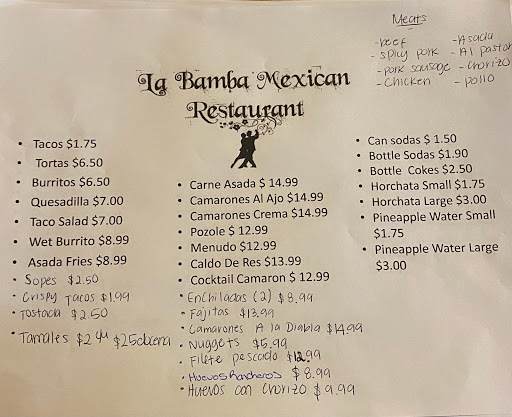 Meats
-beef -Asada
-Spicy pork -Al pastor
-pork sausage -Chorizo
-Chicken -pollo
La Bamba Mexican
Restaurant
• Tacos $1.75
• Tortas $6.50
• Burritos $6.50
• Quesadilla $7.00
• Taco Salad $7.00
• Wet Burrito $8.99
• Asada Fries $8.99
• Sopes $2.50
• Crispy Tacos $1.99
• Tostada $2.50
• Tamales $2 qu $25 docena
• Carne Asada $ 14.99
• Camarones Al Ajo $14.99
• Camarones Crema $14.99
• Pozole $ 12.99
• Menudo $12.99
• Caldo De Res $13.99
• Cocktail Camaron $ 12.99
• Enchiladas (2) $8.99
• Fajitas $13.99
• Camarones A la Diabla $14.99
• Nuggets $5.99
• Filete pescado $12.99
• Huevos Rancheros $8.99
• Huevos con Chorizo $9.99
• Can sodas $ 1.50
• Bottle Sodas $1.90
• Bottle Cokes $2.50
• Horchata Small $1.75
• Horchata Large $3.00
• Pineapple Water Small
$1.75
• Pineapple Water Large
$3.00